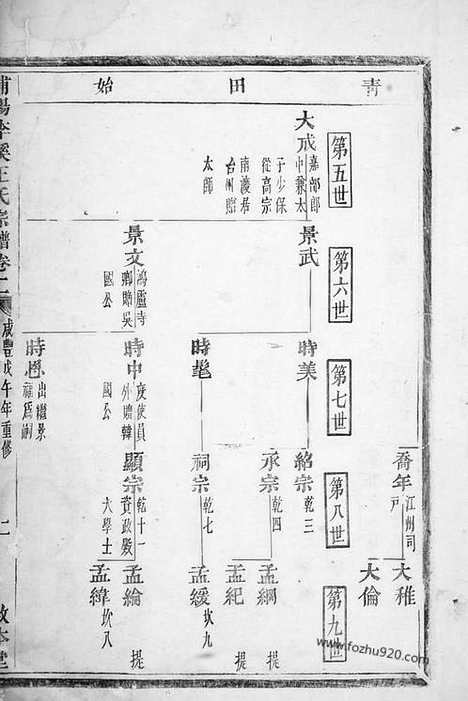 青田始
第五世
第六世
第七世
第八世
第九世
喬年 江州司戶
大稚
大倫
大成 嘉部郎中兼太子少保從高宗南渡居台州贈太師
景武
時美
紹宗 乾三
承宗 乾四
孟綱 提
孟紀 提
時髦
祠宗 乾七
孟緩 坎九
景文 鴻臚寺卿贈吳國公
時中 度使員外贈韓國公
顯宗 乾十一資政殿大學士
孟綸 提
孟緯 坎八
時恩 出繼景福爲嗣
浦陽李溪王氏宗譜卷十二
咸豐戊午年重修
二
敦本堂
www.fozhu920.com